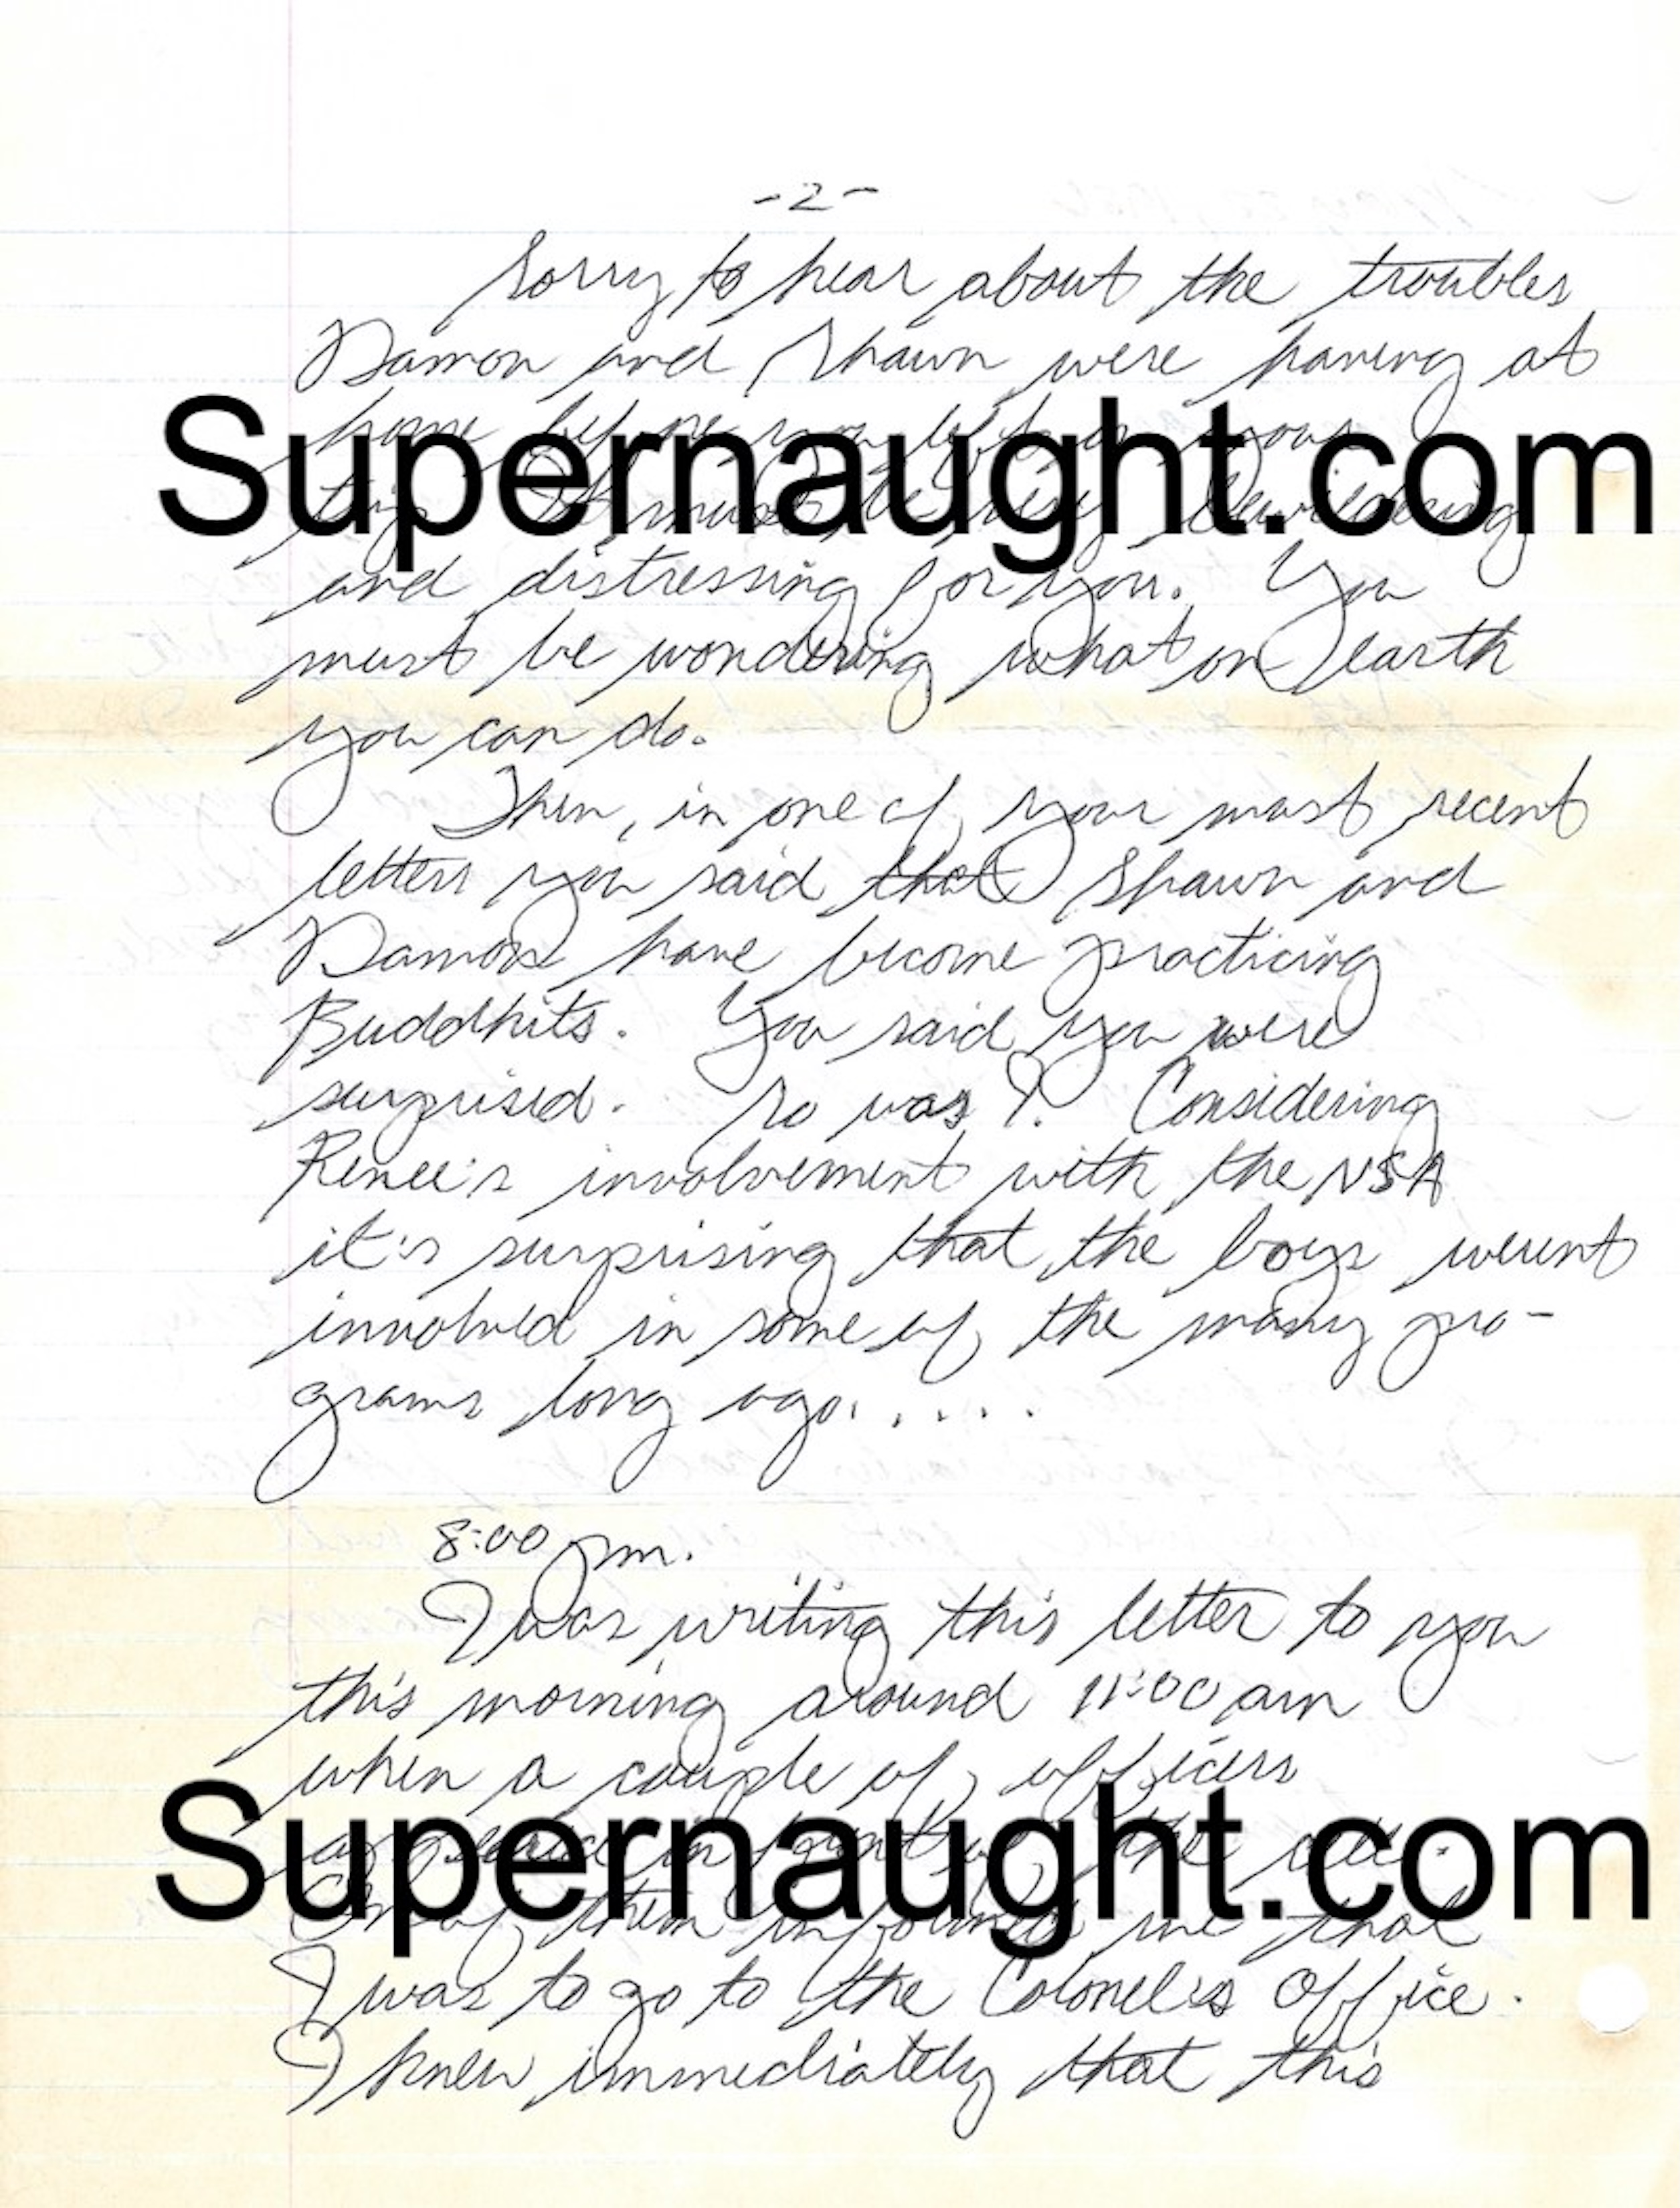 -2-
Sorry to hear about the troubles
Damon and Shawn were having at
home before you left on your
Supernaught.com
trip. It must be very bewildering
and distressing for you. You
must be wondering what on earth
you can do.
Then, in one of your most recent
letters you said that Shawn and
Damon have become practicing
Buddhits. You said you were
surprised. So was I. Considering
Renee's involvement with the NSA
it's surprising that the boys werent
involved in some of the many pro-
grams long ago.....
8:00 pm.
I was writing this letter to you
this morning around 11:00 am
when a couple of officers
appeared in front of the cell.
Supernaught.com
One of them informed me that
I was to go to the Colonel's Office.
I knew immediately that this